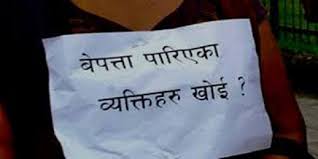 बेपत्ता पारिएका
व्यक्तिहरु खोई ?